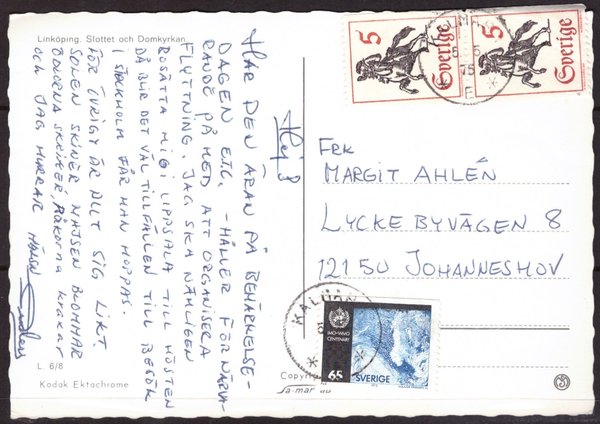 Linköping. Slottet och Domkyrkan.
Hej 8
HAR DEN ÄRAN PÅ BEMÄRKELSE-
DAGEN ETC. - HÅLLER FÖR NÄRVA-
RANDE PÅ MED ATT ORGANISERA
FLYTTNING. JAG SKA NÄMLIGEN
BOSÄTTA MIG I UPPSALA TILL HÖSTEN
DÅ BLIR DET VÄL TILLFÄLLEN TILL BESÖK
I STOCKHOLM FÅR MAN HOPPAS.
FÖR ÖVRIGT ÄR ALLT SIG LIKT.
SOLEN SKINER MAJSEN BLOMMAR
och JAG HURRAR
L. 6/8
Kodak Ektachrome
5
Sverige
5
Sverige
FRK
MARGIT AHLÉN
LYCKEBYVÄGEN 8
121 50 JOHANNESHOV
KALMAR
IMO-WMO
CENTENARY
65
SVERIGE